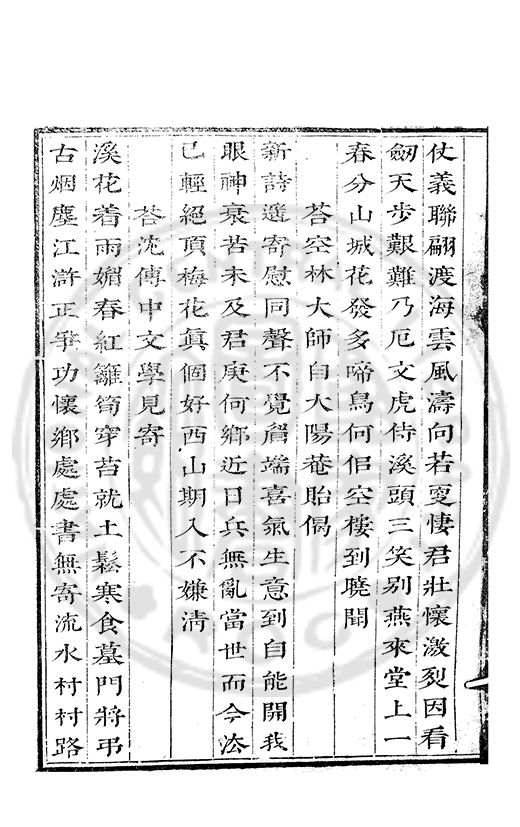 仗義聯翩渡海雲風濤向若敻悽君壯懷激烈因看
劒天步艱難乃厄文虎侍溪頭三笑别燕來堂上一
春分山城花發多啼鳥何佀空樓到曉聞
荅空林大師自大陽菴貽偈
新詩遥寄慰同聲不覺眉端喜氣生意到自能開我
眼神衰苦未及君庚何鄉近日兵無亂當世而今法
已輕絕頂梅花眞個好西山期入不嫌淸
荅沈傳中文學見寄
溪花着雨媚春紅籬筍穿苔就土鬆寒食墓門將弔
古烟塵江滸正爭功懷鄉處處書無寄流水村村路